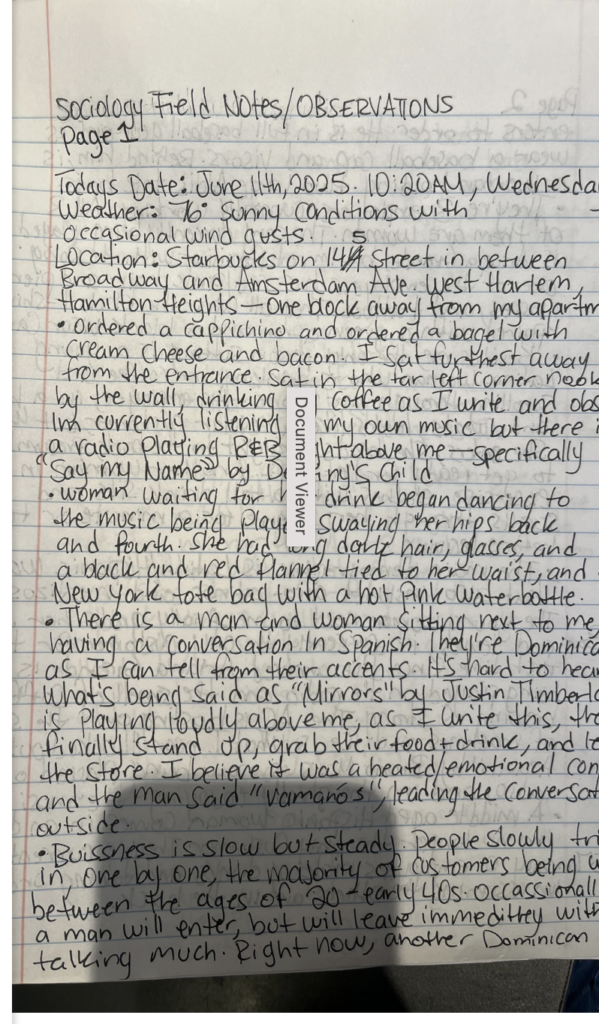 Sociology Field Notes/OBSERVATIONS
Page 1
Todays Date: June 11th, 2025. 10:20AM, Wednesda
Weather: 76° Sunny conditions with
occasional wind gusts.
Location: Starbucks on 145 Street in between
Broadway and Amsterdam Ave. West Harlem,
Hamilton Heights—one block away from my apartm
• ordered a cappichino and ordered a bagel with
cream cheese and bacon. I sat furthest away
from the entrance. Sat in the far left corner nook
by the wall, drinking coffee as I write and obs
Im currently listening my own music but there i
a radio playing R&B ght above me—specifically
"Say my Name" by De iny's Child
• woman waiting for h drink began dancing to
the music being playe swaying her hips back
and fourth. She had long dark hair, glasses, and
a black and red flannel tied to her waist, and
New York tote bag with a hot pink waterbottle.
• There is a man and woman sitting next to me,
having a conversation in Spanish. They're Dominica
as I can tell from their accents. It's hard to hear
what's being said as "Mirrors" by Justin Timberl
is playing loudly above me, as I write this, the
finally stand up, grab their food + drink, and le
the store. I believe it was a heated/emotional con
and the man said "vamanos", leading the conversat
outside.
• Buissness is slow but steady. People slowly tri
in, one by one, the majority of customers being w
between the ages of 20 - early 40s. occassionall
a man will enter, but will leave immedittey with
talking much. Right now, another Dominican
Document Viewer